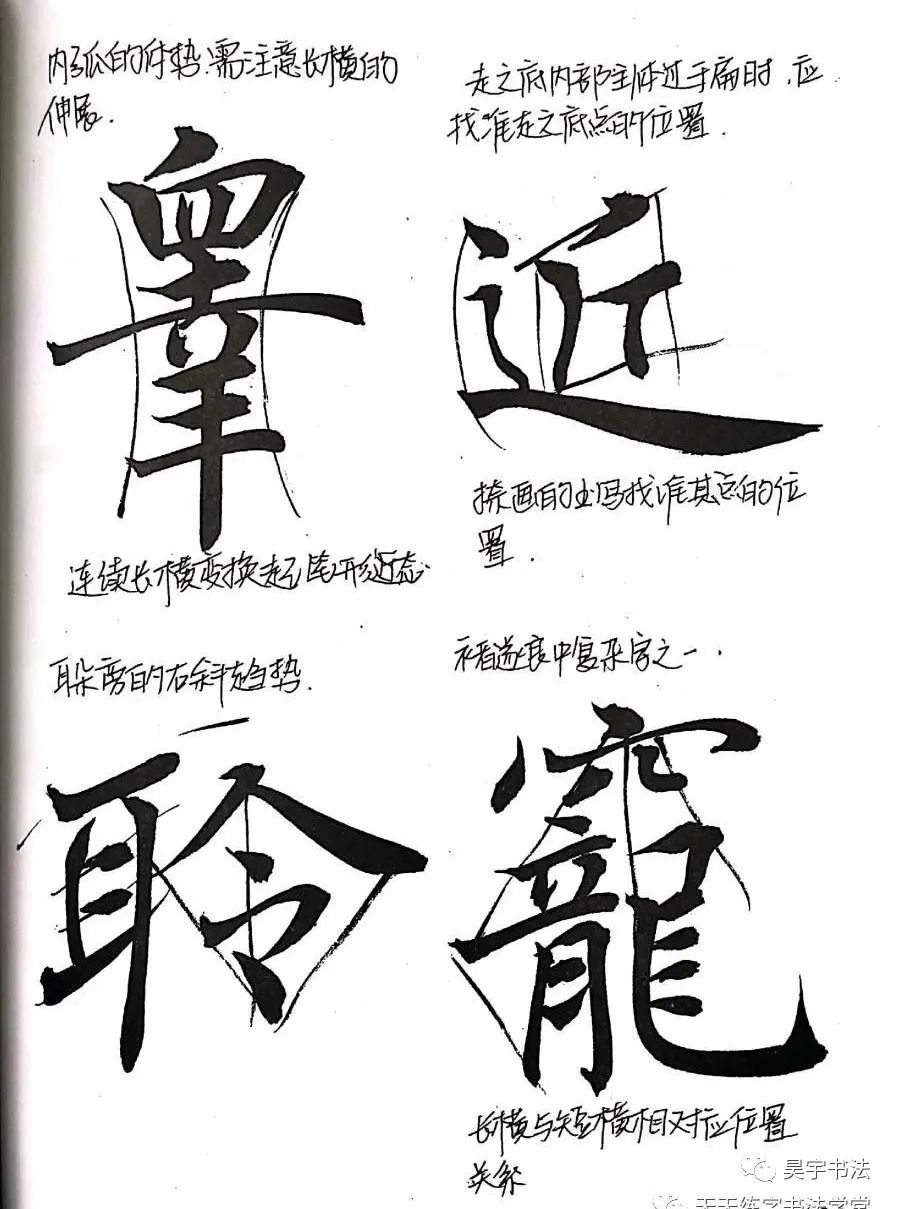 内弧的体势.需注意长横的
伸展.
睪
连续长横变换起笔形态
走之底内部主体过于扁时.应
找准走之底点的位置.
近
捺画的书写找准其点的位
置.
耳朵旁的右斜趋势.
聆
褚遂良中复杂字之一.
寵
长横与短横相对应位置
关系
昊宇书法
天天练字书法学堂